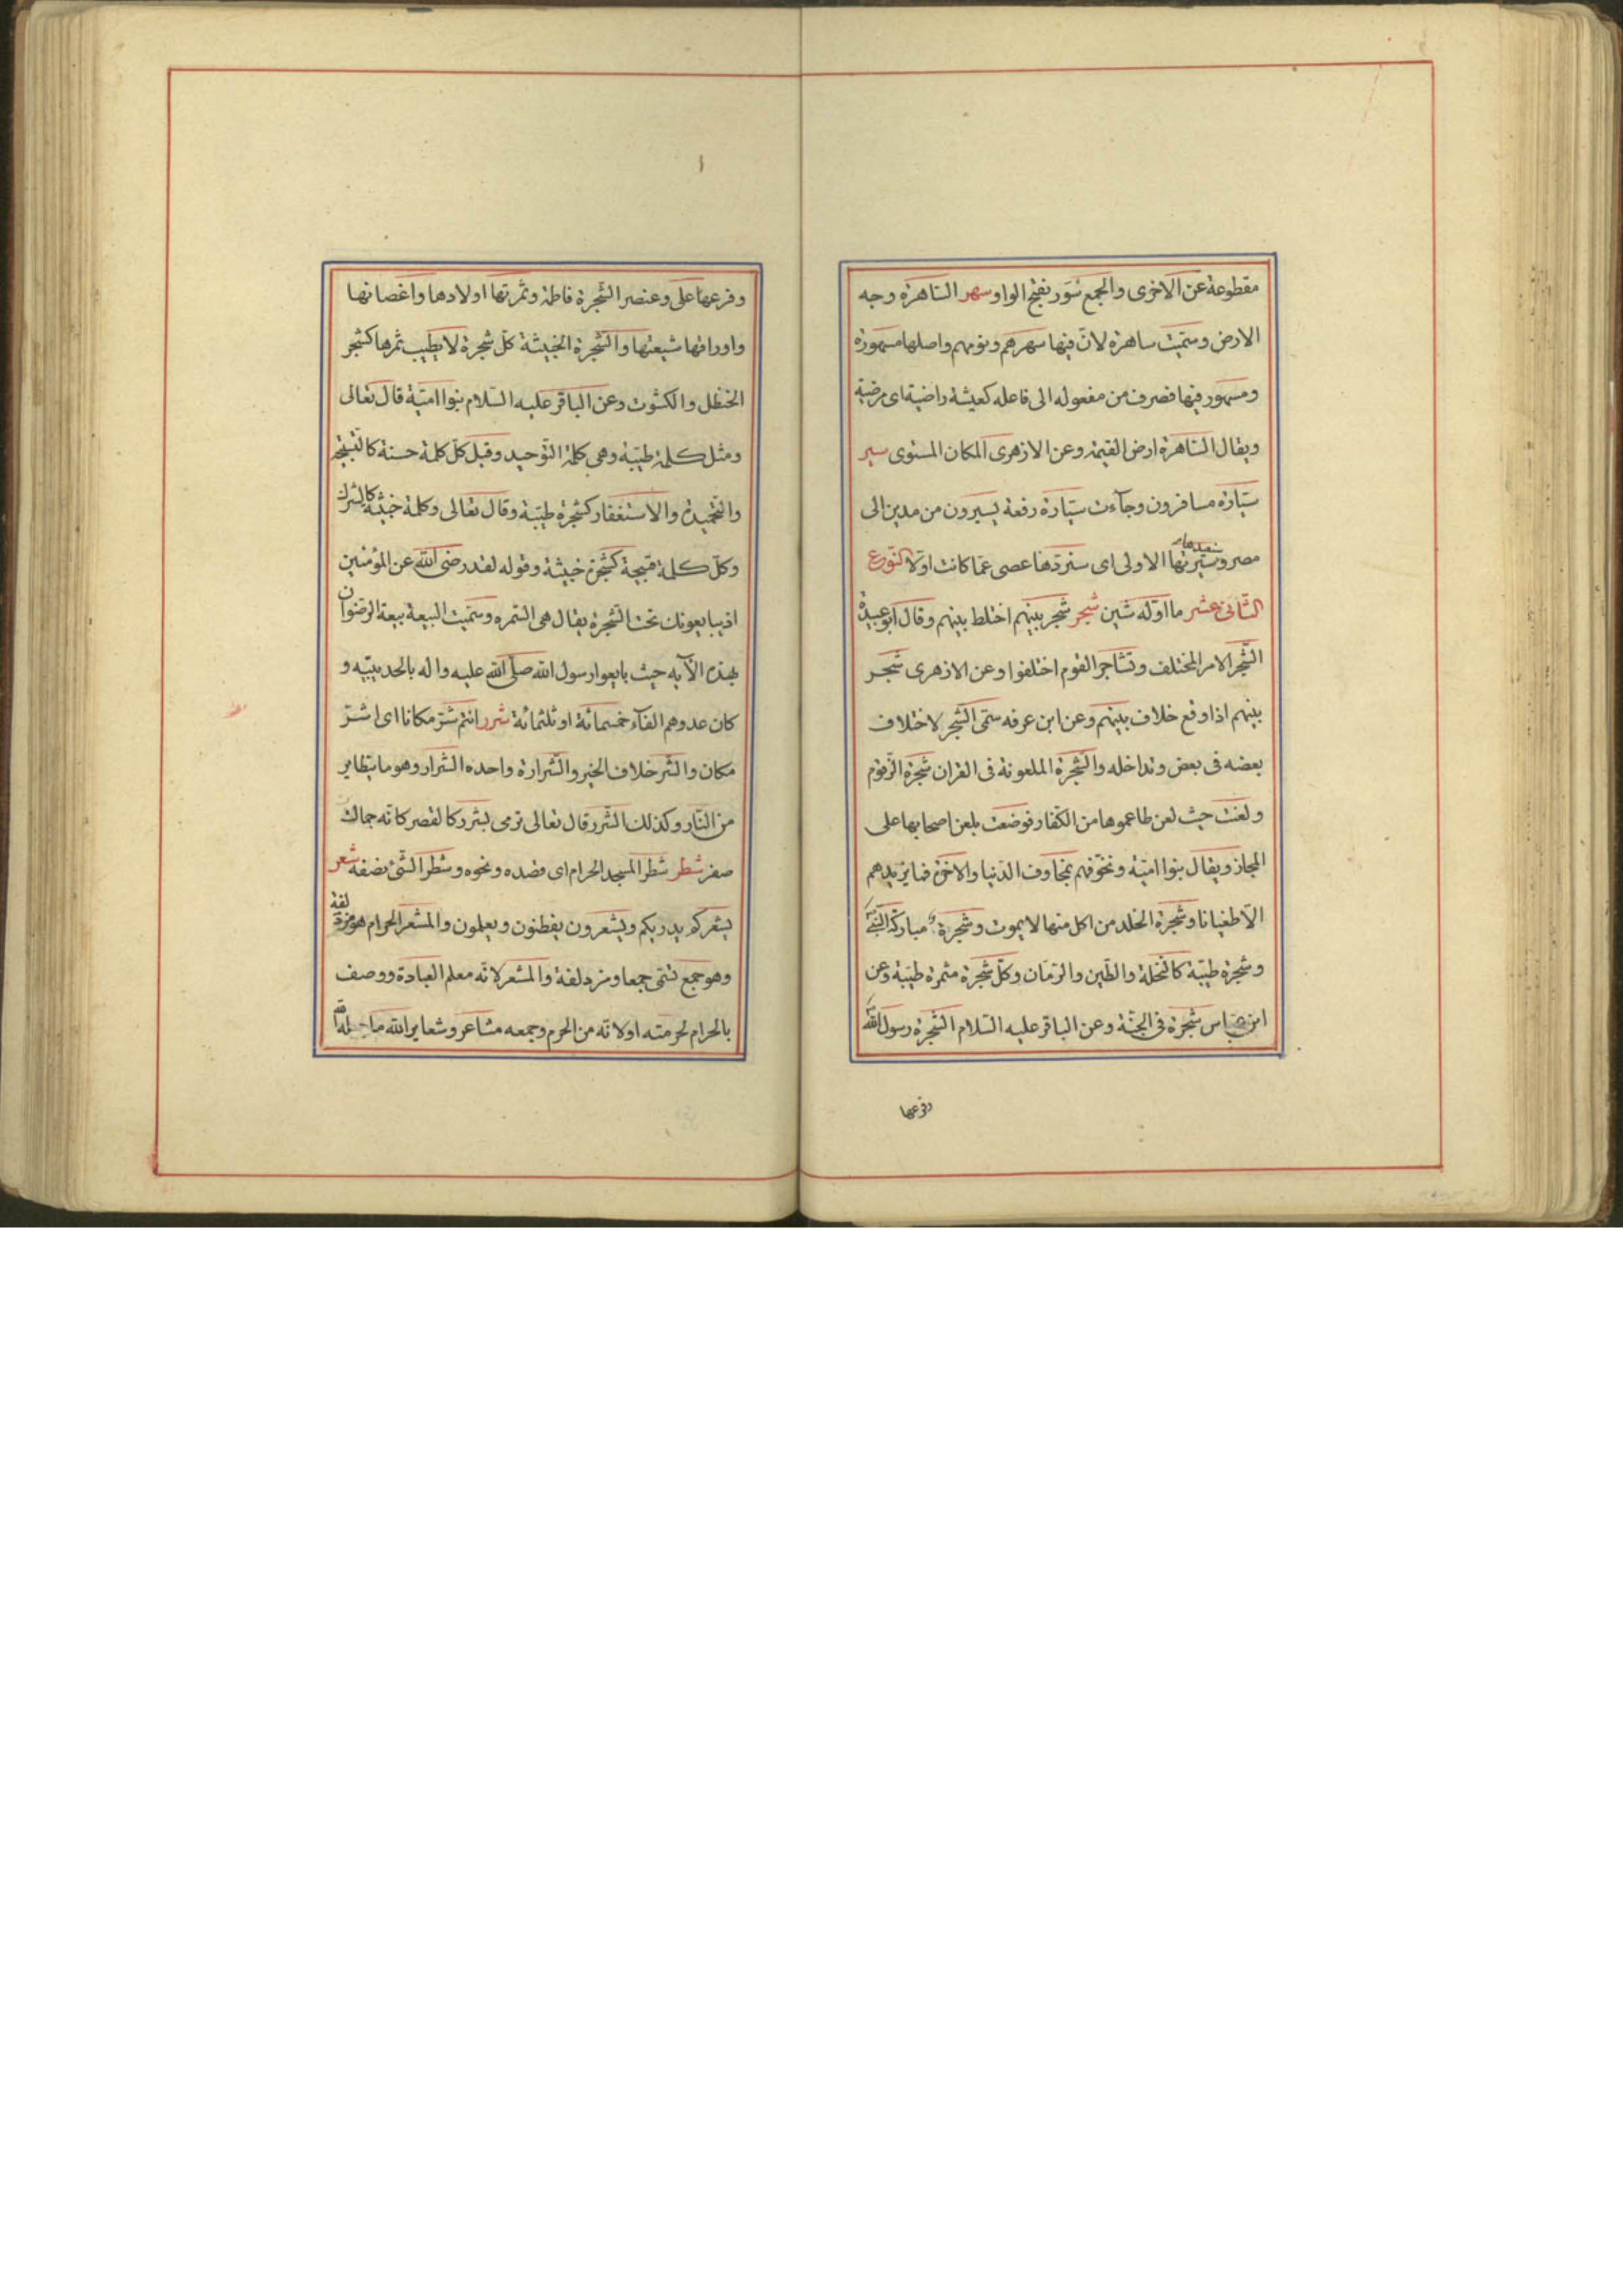 مقطوعة عن الاخرى والجمع سور بفتح الواو سهر الساهرة وجه
الارض وسميت ساهرة لان فيها سهرهم ونومهم واصلها مسهورة
ومسهور فيها فصرف من مفعوله الى فاعله كعيشة راضية اى مرضية
ويقال الساهرة ارض القيمة وعن الازهرى المكان المستوى سير
سيارة مسافرون وجآءت سيارة رفعة يسيرون من مدين الى
مصر وسنعيدها سيرتها الاولى اى سنردها عصى عما كانت اولا النوع
الثانى عشر ما اوله شين شجر شجر بينهم اختلط بينهم وقال ابو عبيدة
الشجر الامر المختلف وتشاجر القوم اختلفوا وعن الازهرى شجر
بينهم اذا وقع خلاف بينهم وعن ابن عرفه سمى الشجر لاختلاف
بعضه فى بعض وتداخله والشجرة الملعونة فى القران شجرة الزقوم
ولعنت حيث لعن طاعموها من الكفار فوضعت بلعن اصحابها على
المجاز ويقال بنوا امية ونخوفهم بمخاوف الدنيا والاخرة فما يزيدهم
الا طغيانا وشجرة الخلد من اكل منها لا يموت وشجرة مباركة
وشجرة طيبة كالنخلة والطين والرمان وكل شجرة مثمرة طيبة وعن
ابن عباس شجرة فى الجنة وعن الباقر عليه السلام الشجرة رسول الله
وفرعها
وفرعها على وعنصر الشجرة فاطمة وثمرتها اولادها واغصانها
واوراقها شيعتها والشجرة الخبيثة كل شجرة لا يطيب ثمرها كشجر
الحنظل والكشوت وعن الباقر عليه السلام بنوا امية قال تعالى
ومثل كلمة طيبة وهى كلمة التوحيد وقيل كل كلمة حسنة كالتسبيح
والتحميدة والاستغفار كشجرة طيبة وقال تعالى وكلمة خبيثة كالشرك
وكل كلمة قبيحة كشجرة خبيثة وقوله لقد رضى الله عن المؤمنين
اذ يبايعونك تحت الشجرة يقال هى السمره وسميت البيعة بيعة الرضوان
بهذه الآيه حيث بايعوا رسول الله صلى الله عليه واله بالحديبيه و
كان عدوهم الفآء خمسمائة او ثلثمائة شرر انتم شر مكانا اى اشر
مكان والشر خلاف الخير والشرارة واحده الشرار وهو ما يتطاير
من النار وكذلك الشرر قال تعالى ترمى بشرر كالقصر كانه جمالت
صفر شطر شطر المسجد الحرام اى قصده ونحوه وشطر الشئ نصفه شعر
يشعركم يدريكم ويشعرون يفطنون ويعلمون والمشعر الحرام هو مزدلفة
وهو جمع تسمى جمعا ومزدلفة والمشعر لانه معلم العبادة ووصف
بالحرام لحرمته اولانه من الحرم وجمعه مشاعر وشعاير الله ما جعله الله